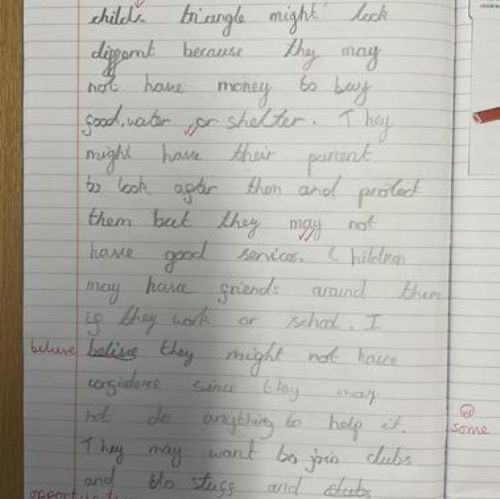 childs triangle might look
different because they may
not have money to buy
good.water or shelter. They
might have their parent
to look after them and protect
them but they may not
have good services. Children
may have friends around them
if they work or school. I
believe belive they might not have
confidence since they may
not do anything to help it.
some
They may want to join clubs
and do stuff and clubs